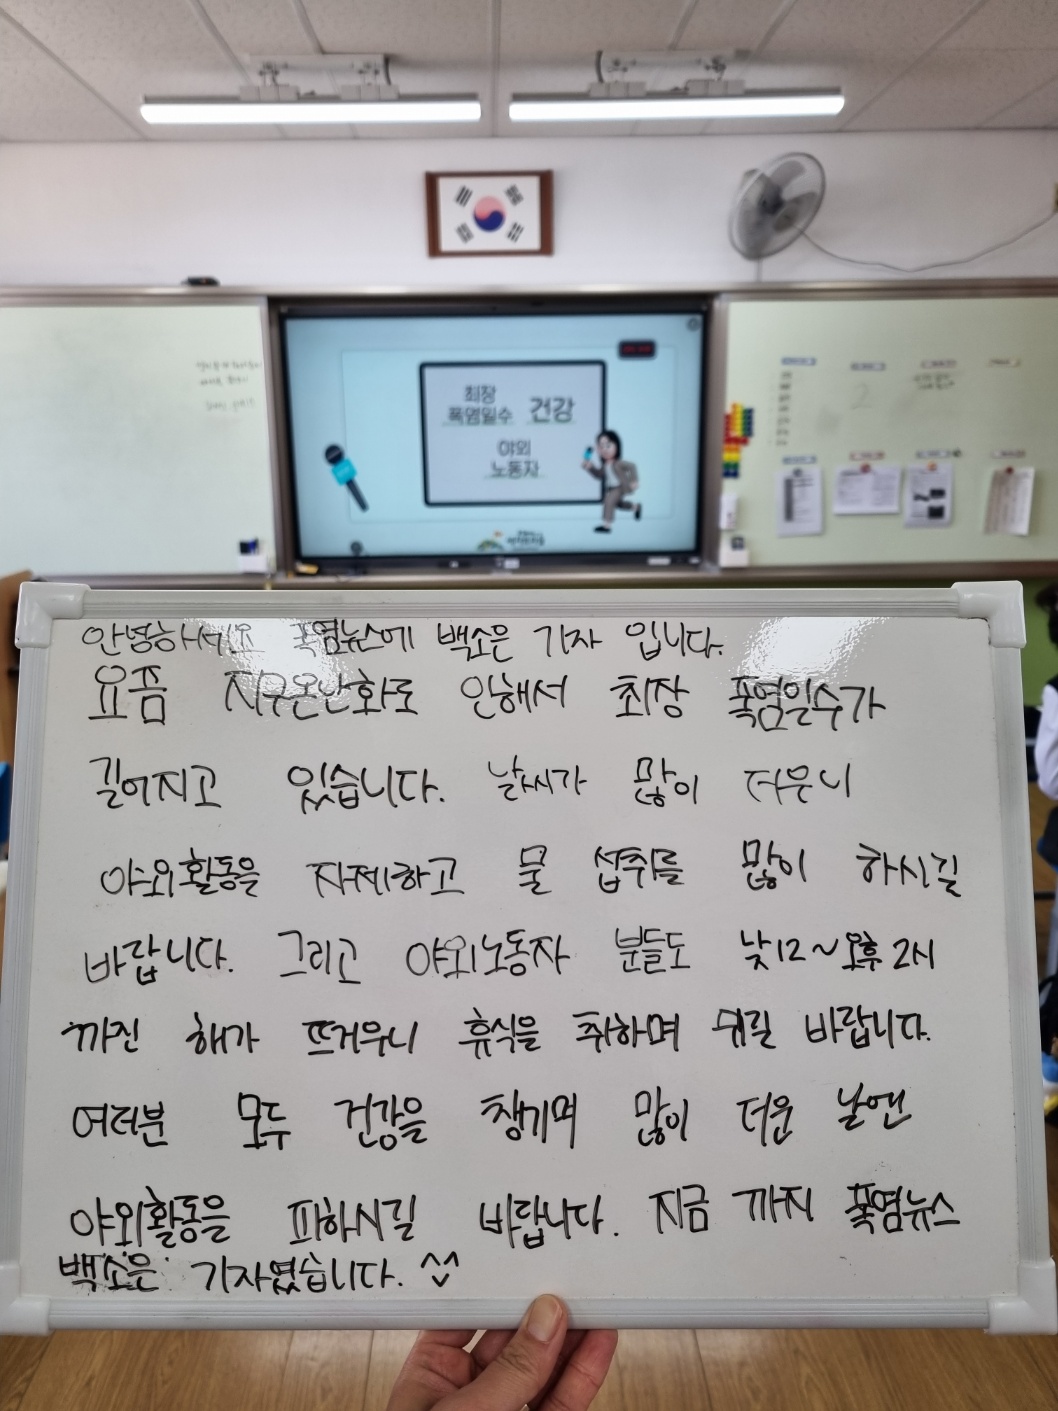 최장
폭염일수 건강
야외
노동자
안녕하세요 폭염뉴스에 백소은 기자 입니다.
요즘 지구온난화로 인해서 최장 폭염일수가
길어지고 있습니다. 날씨가 많이 더우니
야외활동을 자제하고 물 섭취를 많이 하시길
바랍니다. 그리고 야외노동자 분들도 낮12~오후 2시
까진 해가 뜨거우니 휴식을 취하며 쉬길 바랍니다.
여러분 모두 건강을 챙기며 많이 더운 날엔
야외활동을 피하시길 바랍니다. 지금 까지 폭염뉴스
백소은 기자였습니다. ^^